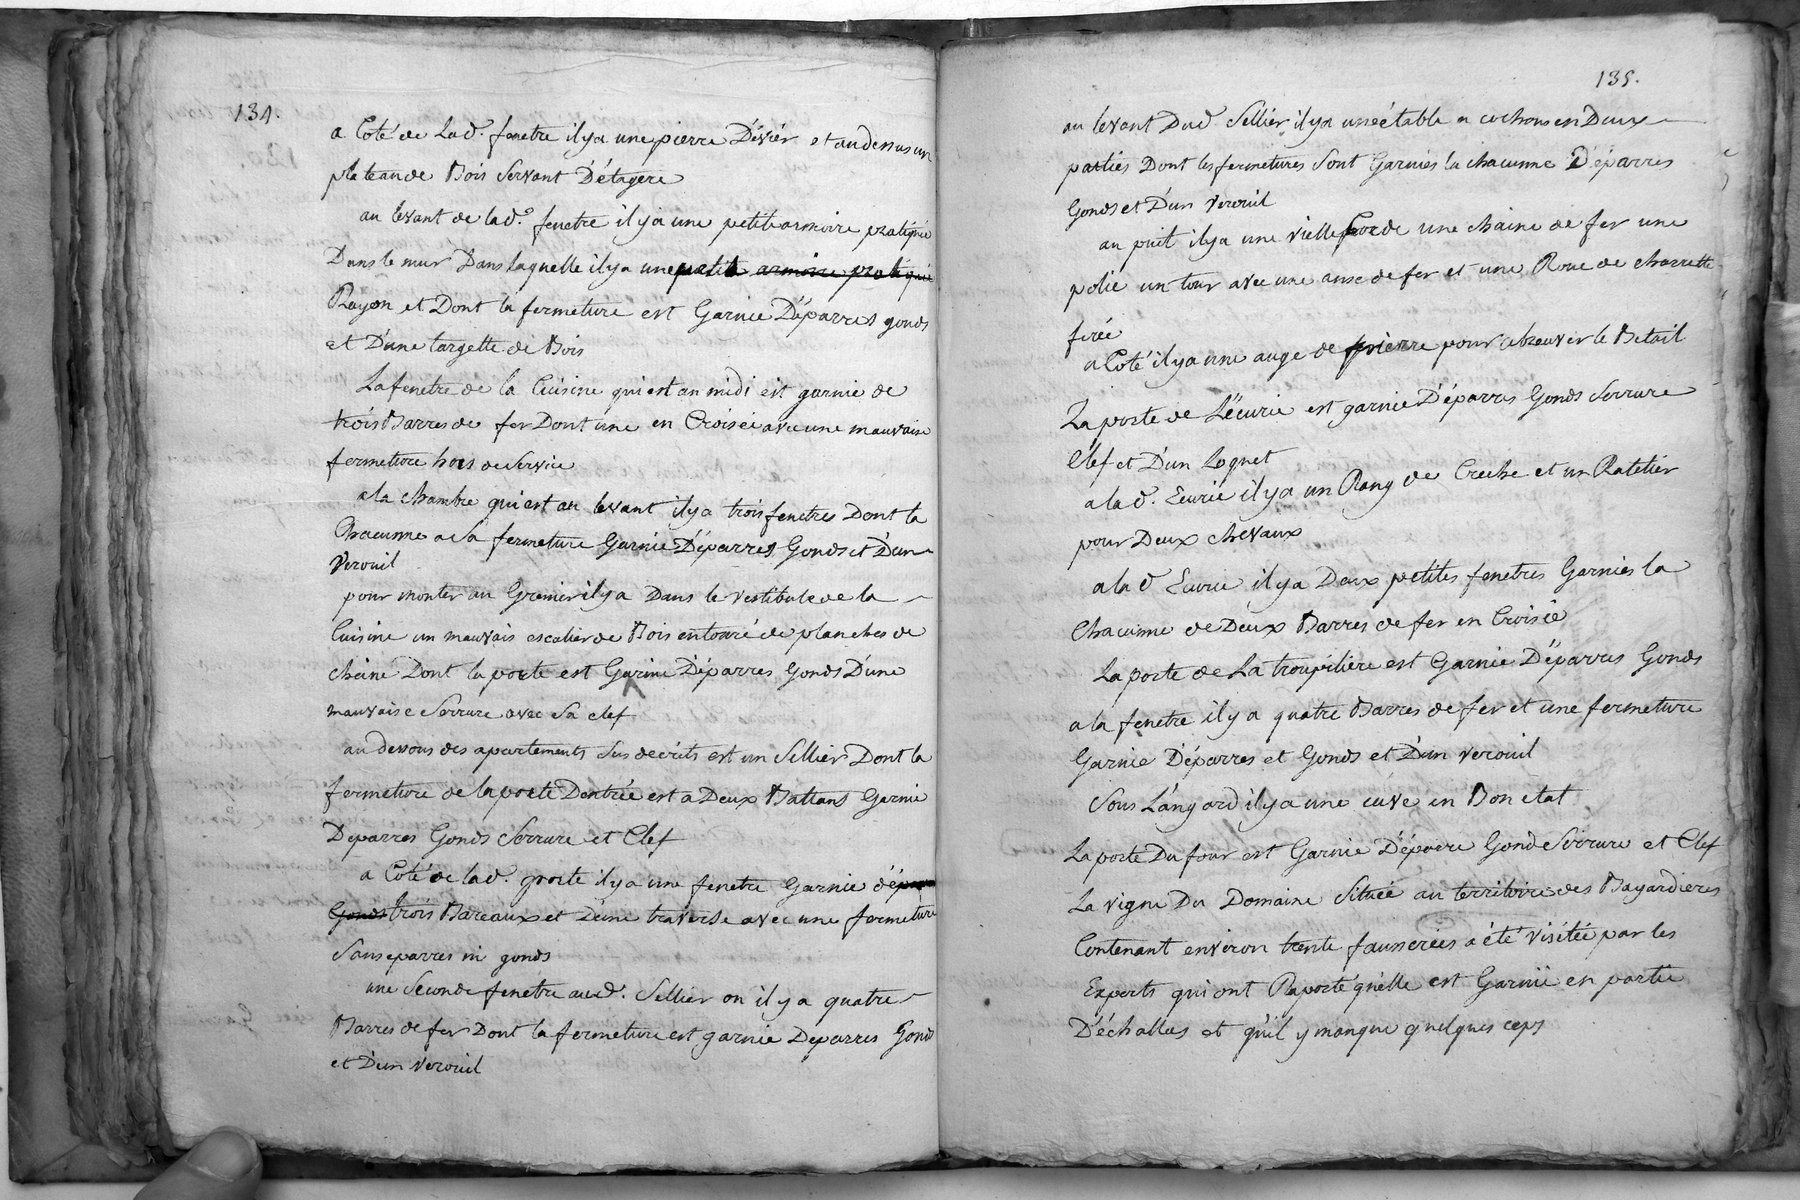 134.
a Coté de Lad.e fenetre il y a une pierre D'évier et au dessus un
plateau de Bois Servant D'étagere
au levant de lad.e fenetre il y a une petite armoire pratiqué
Dans le mur Dans laquelle il y a une petite armoire pratiqué
Rayon et Dont la fermeture est Garnie D'éparres gonds
et D'une targette de Bois
La fenetre de la Cuisine qui est au midi est garnie de
trois Barres de fer Dont une en Croisée avec une mauvaise
fermeture hors de Service
a la chambre qui est au levant il y a trois fenetres Dont la
Chacunne a Sa fermeture Garnie D'éparres Gonds et D'un
Verouil
pour monter au Grenier il y a Dans le vestibule de la
Cuisine un mauvais escalier de Bois entouré de planches de
chêne Dont la porte est Garnie D'éparres Gonds D'une
mauvaise Serrure avec Sa clef
au dessous des apartements Sus decrits est un Sellier Dont la
fermeture de la porte Dentrée est a Deux Battans Garnie
Deparres Gonds Serrure et Clef
a Coté de lad. porte il y a une fenetre Garnie d'éparres
Gonds trois Bareaux et D'une traverse avec une fermeture
Sans eparres ni gonds
une Seconde fenetre aud. Sellier ou il y a quatre
Barres de fer Dont la fermeture est garnie Deparres Gonds
et D'un verouil
135.
au levant Dud. Sellier il y a une étable a cochons en Deux
parties Dont les fermetures Sont Garnies la chacunne D'éparres
Gonds et D'un Verouil
au puit il y a une vielle Corde une chaine de fer une
polie un tour avec une anse de fer et une Roue de charrette
ferée
a Coté il y a une auge de pierre pour abreuver le Betail
La porte de L'écurie est garnie D'éparres Gonds Serrure
Clef et D'un Loquet
a la d. Ecurie il y a un Rang de Creche et un Ratelier
pour Deux chevaux
a la d Ecurie il y a Deux petites fenetres Garnies la
Chacunne de Deux Barres de fer en Croisée
La porte de La troupéliere est Garnie D'éparres Gonds
a la fenetre il y a quatre Barres de fer et une fermeture
Garnie D'éparres et Gonds et D'un verouil
Sous L'angard il y a une cuve en Bon etat
La porte Du four est Garnie D'éparre Gond Serrure et Clef
La vigne Du Domaine Située au territoire des Bagardieres
Contenant environ trente fausserées a été visitée par les
Experts qui ont Raporté qu'elle est Garnie en partie
D'échallas et qu'il y manque quelques ceps